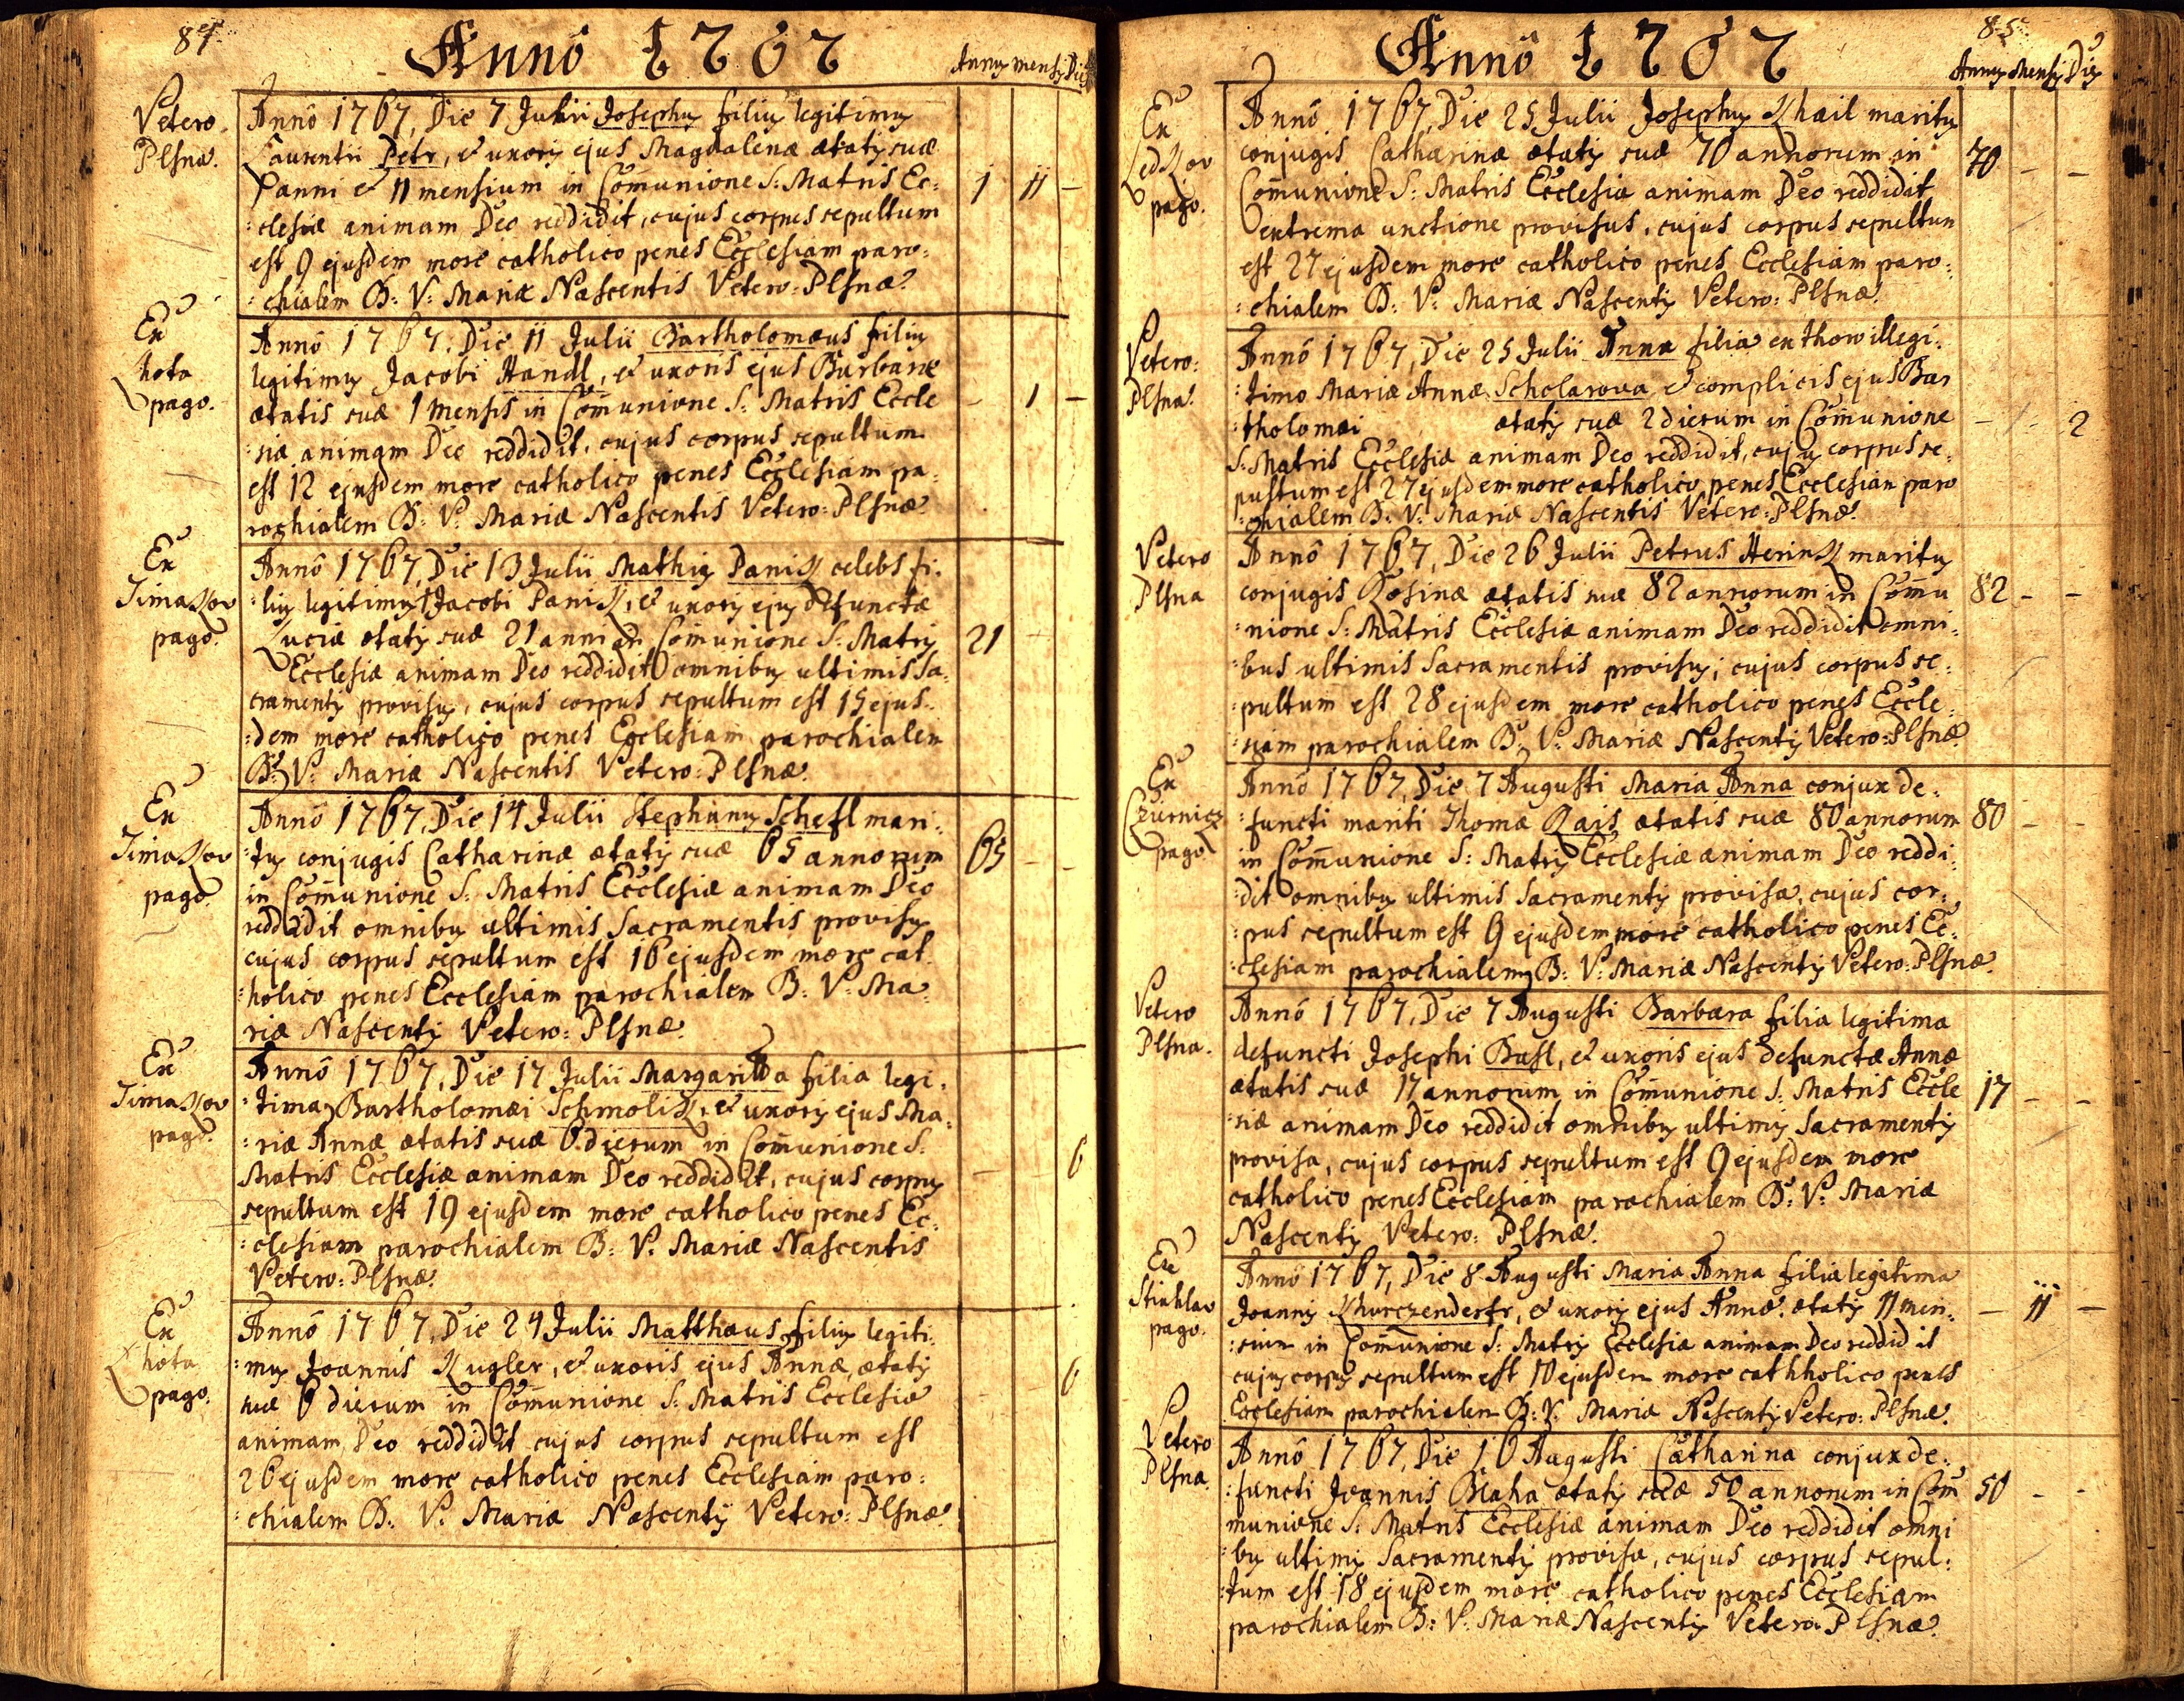 84.
Annô 1767
Annus mensis Dies
Vetero
Plsnæ.
Annô 1767, Die 7 Julii Josephus filius legitimus
Laurentii Petr, et uxoris ejus Magdalenæ ætatis suæ
1 anni et 11 mensium in Comunione S: Matris Ec:
:clesiæ animam Deo reddidit, cujus corpus sepultum
est 9 ejusdem more catholico penes Ecclesiam paro:
:chialem B: V: Mariæ Nascentis Vetero: Plsnæ.
1 11 –
Ex
Lhota
pago.
Annô 1767, Die 11 Julii Bartholomæus filius
legitimus Jacobi Handl, et uxoris ejus Barbaræ
ætatis suæ 1 mensis in Comunione S: Matris Eccle
:siæ animam Deo reddidit, cujus corpus sepultum
est 12 ejusdem more catholico penes Ecclesiam pa:
rochialem B: V: Mariæ Nascentis Vetero: Plsnæ.
– 1 –
Ex
Timakov
pago.
Annô 1767, Die 13 Julii Mathias Panik celebs fi:
:lius legitimus Jacobi Panik, et uxoris ejus defunctæ
Luciæ ætatis suæ 21 anni in Comunione S: Matris
Ecclesiæ animam Deo reddidit omnibus ultimis Sa:
cramentis provisus, cujus corpus sepultum est 15 ejus:
:dem more catholico penes Ecclesiam parochialem
B: V: Mariæ Nascentis Vetero: Plsnæ.
21
Ex
Timakov
pago.
Annô 1767, Die 14 Julii Stephanus Schefl mari:
:tus conjugis Catharinæ ætatis suæ 65 annorum
in Comunione S: Matris Ecclesiæ animam Deo
reddidit omnibus ultimis Sacramentis provisus
cujus corpus sepultum est 16 ejusdem more cat:
:holico penes Ecclesiam parochialem B: V: Ma:
riæ Nascentis Vetero: Plsnæ.
65 – –
Ex
Timakov
pago.
Annô 1767, Die 17 Julii Margaritta filia legi:
:tima Bartholomæi Schmolik, et uxoris ejus Ma:
:riæ Annæ ætatis suæ 6 dierum in Comunione S:
Matris Ecclesiæ animam Deo reddidit, cujus corpus
sepultum est 19 ejusdem more catholico penes Ec:
:clesiam parochialem B: V: Mariæ Nascentis
Vetero: Plsnæ.
– – 6
Ex
Lhota
pago.
Annô 1767, Die 24 Julii Matthæus filius legiti:
:mus Joannis Kugler, et uxoris ejus Annæ, ætatis
suæ 6 dierum in Comunione S: Matris Ecclesiæ
animam Deo reddidit cujus corpus sepultum est
26 ejusdem more catholico penes Ecclesiam paro:
:chialem B: V: Mariæ Nascentis Vetero: Plsnæ.
– – 6
85.
Annô 1767
Annus Mensis Dies
Ex
Ledkov
pago.
Annô 1767, Die 25 Julii Josephus Khail maritus
conjugis Catharinæ ætatis suæ 70 annorum in
Comunione S: Matris Ecclesiæ animam Deo reddidit
extrema unctione provisus, cujus corpus sepultum
est 27 ejusdem more catholico penes Ecclesiam paro:
:chialem B: V: Mariæ Nascentis Vetero: Plsnæ.
70 – –
Vetero:
Plsna.
Annô 1767, Die 25 Julii Anna filia ex thoro illegi:
:timo Mariæ Annæ Scholarova et complicis ejus Bar
:tholomæi ætatis suæ 2 dierum in Comunione
S: Matris Ecclesiæ animam Deo reddidit, cujus corpus se:
pultum est 27 ejusdem more catholico penes Ecclesiam paro
:chialem B: V: Mariæ Nascentis Vetero: Plsnæ.
– – 2
Vetero
Plsna
Annô 1767, Die 26 Julii Petrus Herink maritus
conjugis Rosinæ ætatis suæ 82 annorum in Comu
:nione S: Matris Ecclesiæ animam Deo reddidit omni:
:bus ultimis Sacramentis provisus, cujus corpus se:
:pultum est 28 ejusdem more catholico penes Eccle:
:siam parochialem B: V: Mariæ Nascentis Vetero: Plsnæ.
82 – –
Ex
Cziernicz
pago.
Annô 1767, Die 7 Augusti Maria Anna conjux de:
:functi mariti Thomæ Rais ætatis suæ 80 annorum
in Comunione S: Matris Ecclesiæ animam Deo reddi:
:dit omnibus ultimis Sacramentis provisa, cujus cor:
:pus sepultum est 9 ejusdem more catholico penes Ec:
:clesiam parochialem B: V: Mariæ Nascentis Vetero: Plsnæ.
80 – –
Vetero
Plsna.
Annô 1767, Die 7 Augusti Barbara filia legitima
defuncti Josephi Busl, et uxoris ejus defunctæ Annæ
ætatis suæ 17 annorum in Comunione S: Matris Eccle
:siæ animam Deo reddidit omnibus ultimis Sacramentis
provisa, cujus corpus sepultum est 9 ejusdem more
catholico penes Ecclesiam parochialem B: V: Mariæ
Nascentis Vetero: Plsnæ.
17 – –
Ex
Stiahlav
pago.
Annô 1767, Die 8 Augusti Maria Anna filia legitima
Joannis Khurczenderfr, et uxoris ejus Annæ ætatis 11 men:
:sium in Communione S: Matris Ecclesiæ animam Deo reddidit
cujus corpus sepultum est 10 ejusdem more cathholico penes
Ecclesiam parochialem B: V: Mariæ Nascentis Vetero: Plsnæ.
– 11 –
Vetero
Plsna.
Annô 1767, Die 16 Augusti Catharina conjux de:
:functi Joannis Blaha ætatis suæ 50 annorum in Com
munione S: Matris Ecclesiæ animam Deo reddidit omni
:bus ultimis Sacramentis provisa, cujus corpus sepul:
:tum est 18 ejusdem more catholico penes Ecclesiam
parochialem B: V: Mariæ Nascentis Vetero: Plsnæ.
50 – –